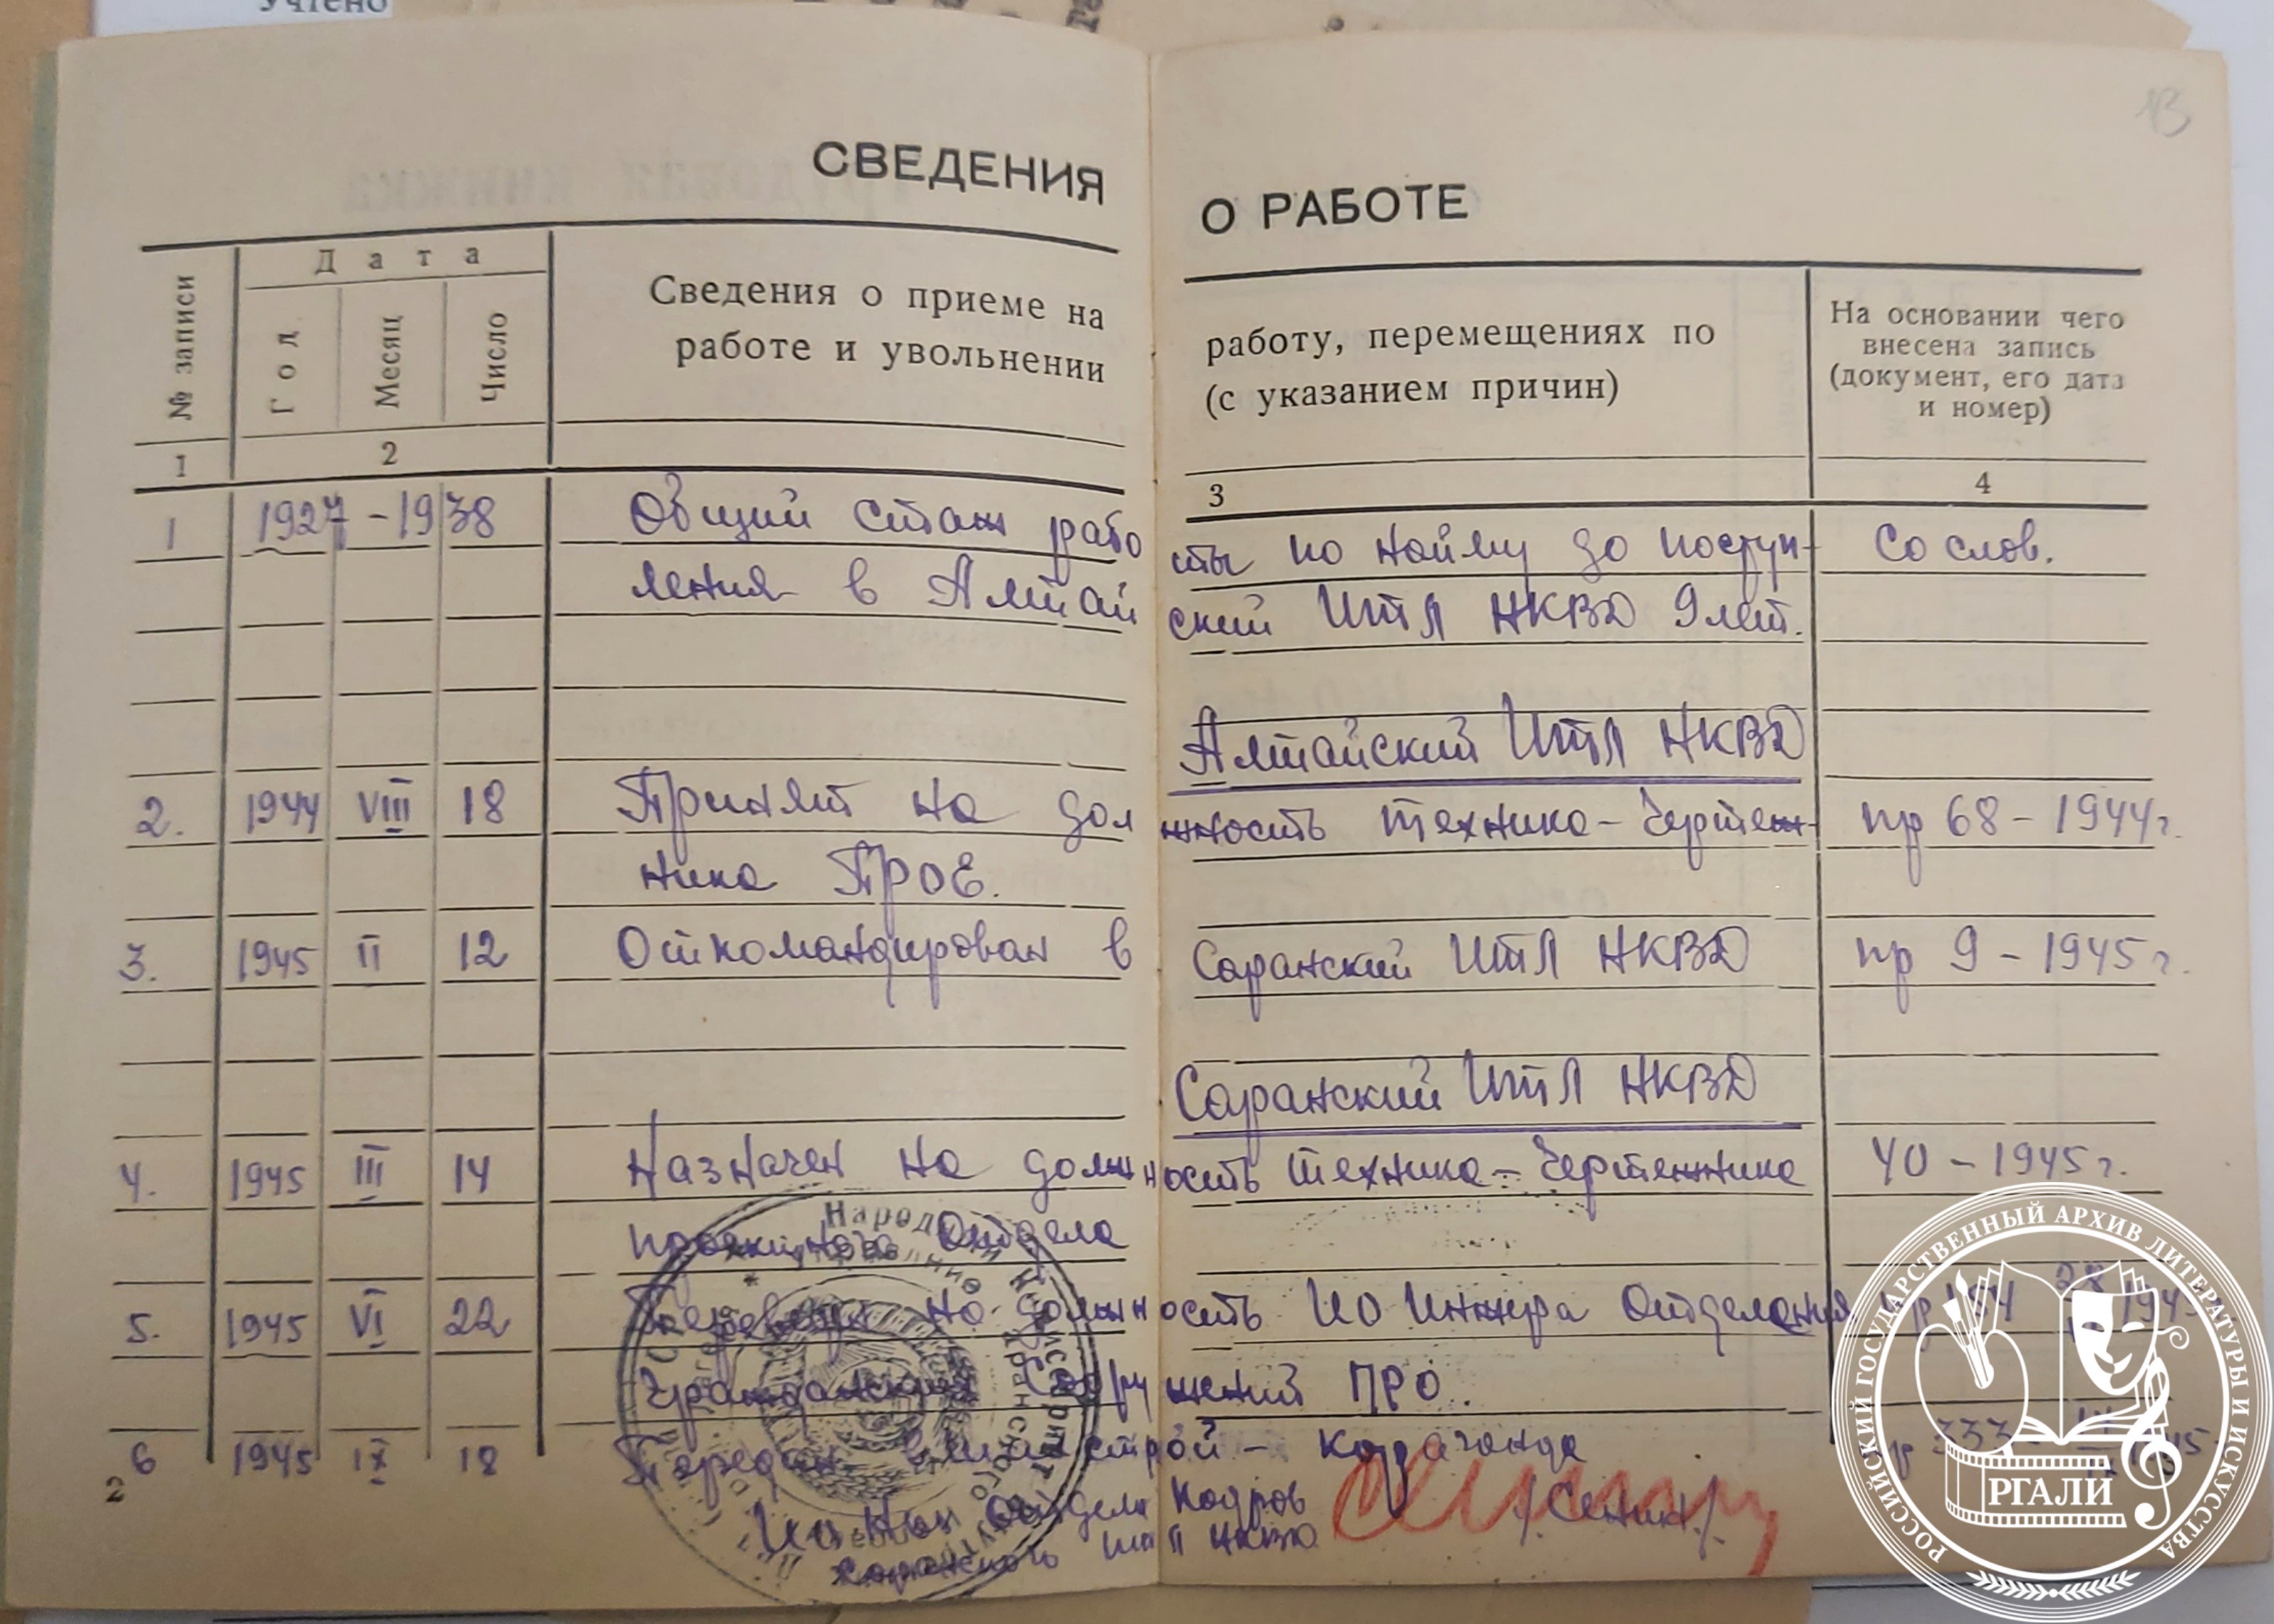 Учтено
13
СВЕДЕНИЯ О РАБОТЕ
№ записи
Дата
Год
Месяц
Число
Сведения о приеме на работу, перемещениях по
работе и увольнении (с указанием причин)
На основании чего
внесена запись
(документ, его дата
и номер)
1 2 3 4
1 1927-1938 Общий стаж работы по найму до поступ- Со слов.
ления в Алтайский ИТЛ НКВД 9 лет.
Алтайский ИТЛ НКВД
2. 1944 VIII 18 Принят на должность техника-чертеж- пр 68-1944г.
ника ПРОЕ.
3. 1945 II 12 Откомандирован в Саранский ИТЛ НКВД пр 9-1945г.
Саранский ИТЛ НКВД
4. 1945 III 14 Назначен на должность техника-чертежника 40-1945г.
проектного Отдела
5. 1945 VI 22 Переведен на должность ИО Инжера Отделения пр
Гражданских Сооружений ПРО.
6 1945 IX 18 Передан строй- Караганда пр 333
2
Ио Нач Отдела Кадров /Сенин/
Саранского ИТЛ НКВД
Народный Комиссариат
РОССИЙСКИЙ ГОСУДАРСТВЕННЫЙ АРХИВ ЛИТЕРАТУРЫ И ИСКУССТВА
РГАЛИ